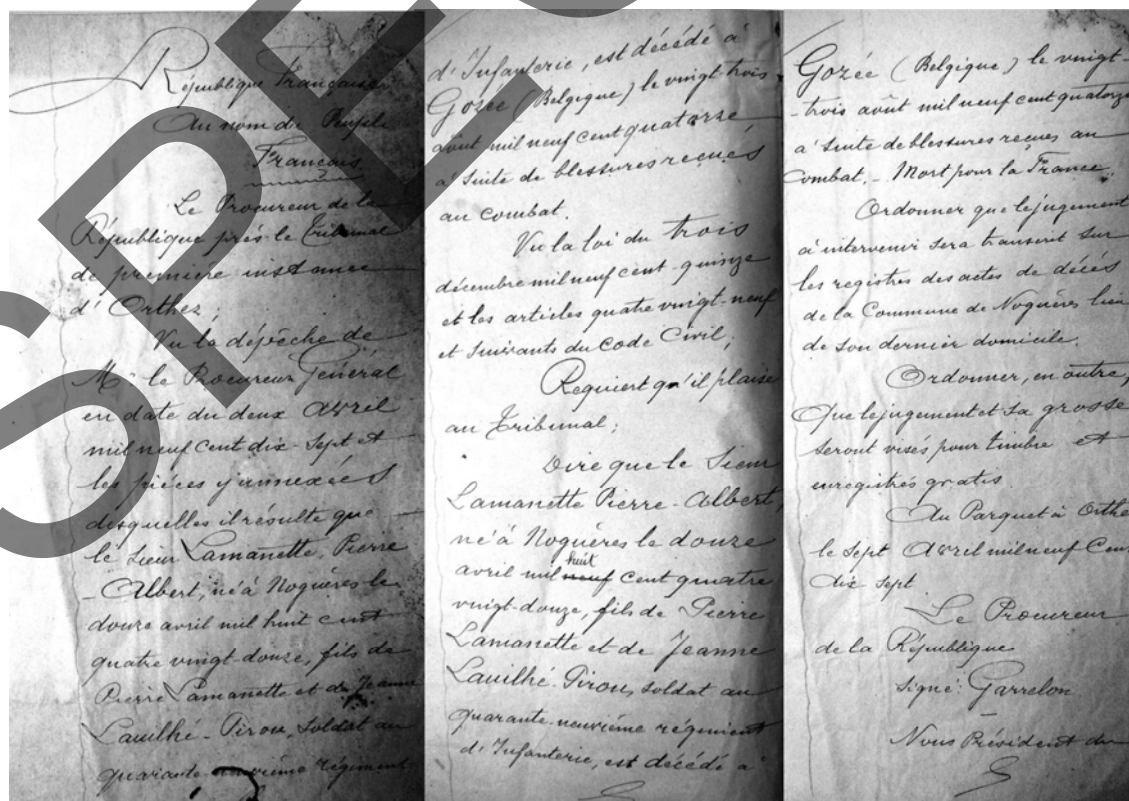 République Française
Au nom du Peuple
Français
Le Procureur de la
République près le Tribunal
de première instance
d'Orthez;
Vu la dépêche de
Mr le Procureur Général
en date du deux Avril
mil neuf cent dix-sept et
les pièces y annexées
desquelles il résulte que
le sieur Lamanette, Pierre
Albert, né à Noguères le
douze avril mil huit cent
quatre vingt-douze, fils de
Pierre Lamanette et de Jeanne
Lauilhé-Pirou, soldat au
quarante-neuvième régiment
d'Infanterie, est décédé à
Gozée (Belgique) le vingt-trois
août mil neuf cent quatorze
à suite de blessures reçues
au combat.
Vu la loi du trois
décembre mil neuf cent-quinze
et les articles quatre vingt-neuf
et suivants du Code Civil;
Requiert qu'il plaise
au Tribunal;
Dire que le Sieur
Lamanette Pierre-Albert,
né à Noguères le douze
huit
avril mil neuf cent quatre
vingt-douze, fils de Pierre
Lamanette et de Jeanne
Lauilhé-Pirou, soldat au
quarante-neuvième régiment
d'Infanterie, est décédé à
Gozée (Belgique) le vingt-
-trois août mil neuf cent quatorze
à suite de blessures reçues au
combat. - Mort pour la France.
Ordonner que le jugement
à intervenir sera transcrit sur
les registres des actes de décès
de la Commune de Noguères lieu
de son dernier domicile.
Ordonner, en outre,
Que le jugement et sa grosse
seront visés pour timbre et
enregistrés gratis.
Au Parquet à Orthe
le sept Avril mil neuf Cent
dix sept
Le Procureur
de la République
Signé: Garrelon
Nous Président du
SPE